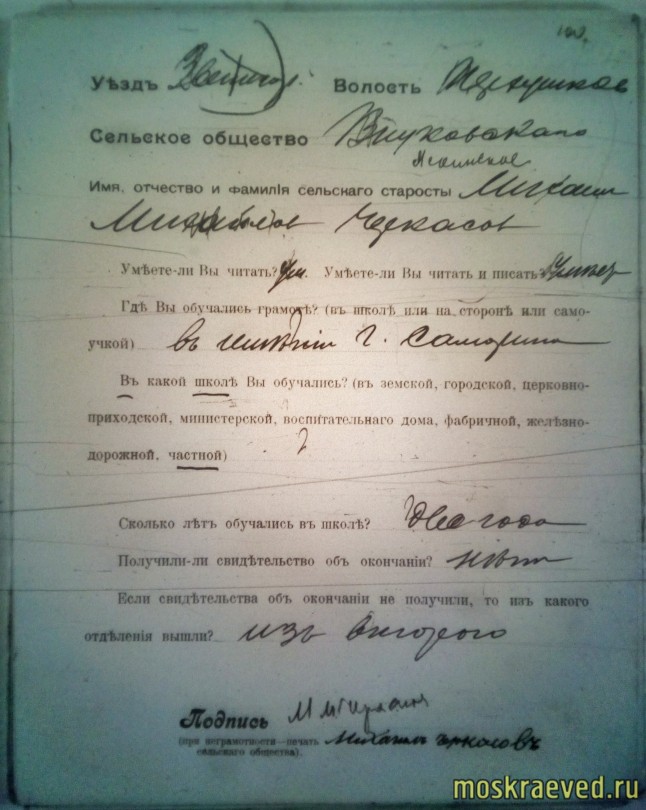 Уѣздъ Волость
Сельское общество Внуковскаго
Имя, отчество и фамилія сельскаго старосты Михаил
Черкасов
Умѣете-ли Вы читать? Умѣете-ли Вы читать и писать
Гдѣ Вы обучались грамотѣ? (въ школѣ или на сторонѣ или само-
учкой) въ имѣнии г. Самарина
Въ какой школѣ Вы обучались? (въ земской, городской, церковно-
приходской, министерской, воспитательнаго дома, фабричной, желѣзно-
дорожной, частной)
?
Сколько лѣтъ обучались въ школѣ? два года
Получили-ли свидѣтельство объ окончаніи? нѣтъ
Если свидѣтельства объ окончаніи не получили, то изъ какого
отдѣленія вышли? изъ второго
Подпись
(при неграмотности—печать Михаилъ Черкасовъ
сельскаго общества).
moskraeved.ru